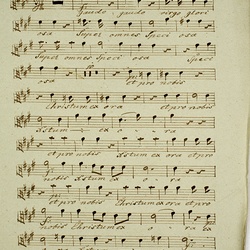 Gaude gaude virgo glori
osa Super omnes Speci osa
Super omnes Speci osa speci
osa et pro nobis
Christum ex ora et pro nobis
stum ex o ra
et pro nobis stum ex ora et pro
nobis stum ex o ra
et pro nobis Christum ex ora et pro
nobis Christum ex o ra